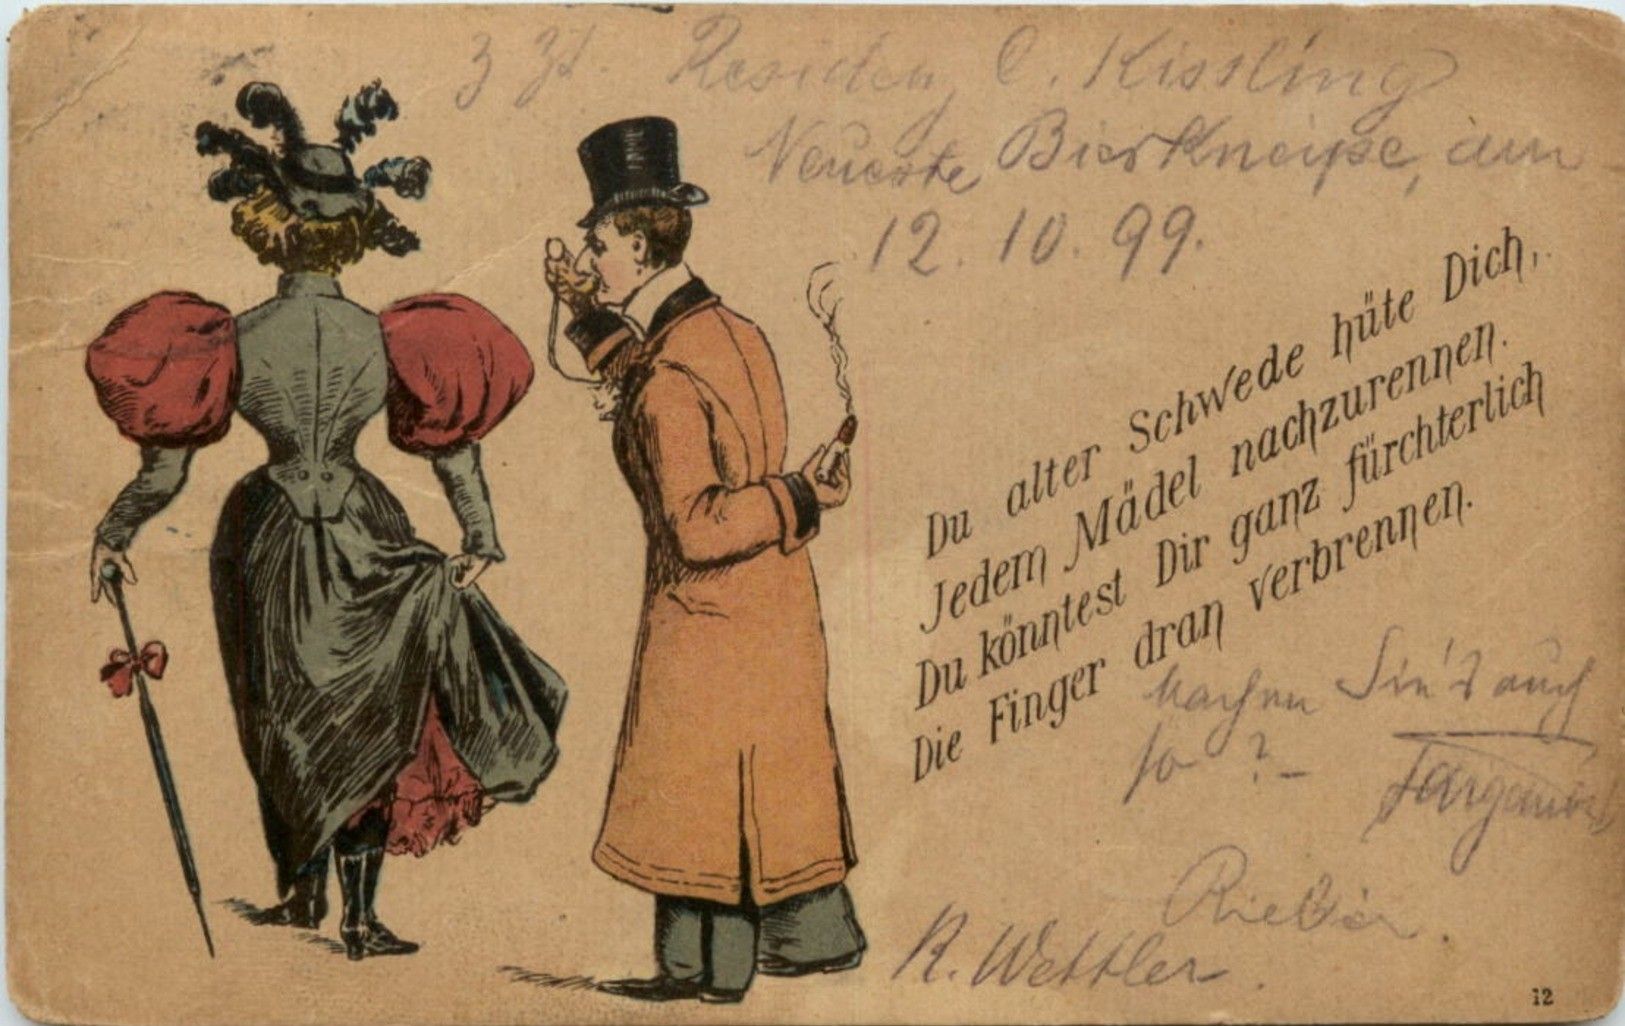 z. Zt. Residenz C. Kissling
Neueste Bierkneipe, am
12.10.99.
Du alter Schwede hüte Dich,
Jedem Mädel nachzurennen.
Du könntest Dir ganz fürchterlich
Die Finger dran verbrennen.
Machen Sie's auch
so? –
R. Wettler
12